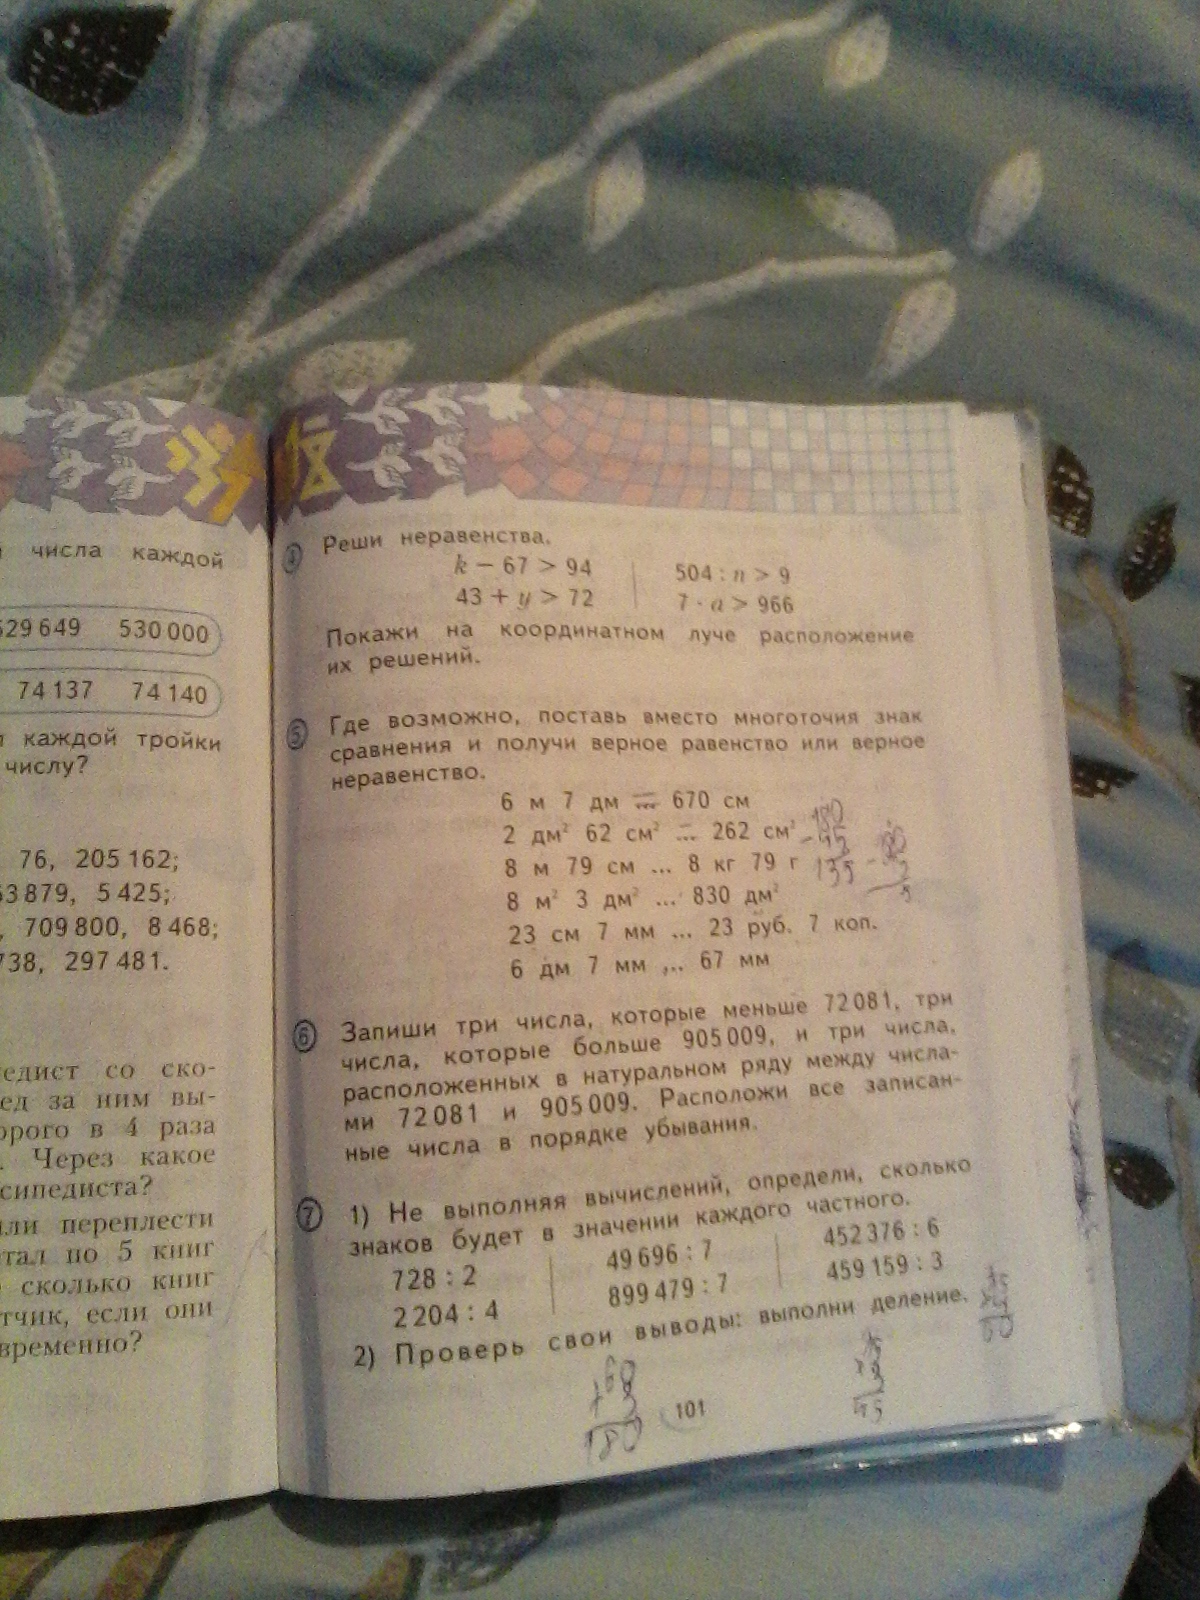 числа каждой
529 649 530 000
74 137 74 140
каждой тройки
числу?
76, 205 162;
63 879, 5 425;
, 709 800, 8 468;
738, 297 481.
едист со ско-
ед за ним вы-
орого в 4 раза
. Через какое
сипедиста?
или переплести
тал по 5 книг
сколько книг
тчик, если они
временно?
4 Реши неравенства.
k − 67 > 94 504 : n > 9
43 + y > 72 7 · a > 966
Покажи на координатном луче расположение
их решений.
5 Где возможно, поставь вместо многоточия знак
сравнения и получи верное равенство или верное
неравенство.
6 м 7 дм = ... 670 см
2 дм² 62 см² = ... 262 см²
8 м 79 см ... 8 кг 79 г
8 м² 3 дм² ... 830 дм²
23 см 7 мм ... 23 руб. 7 коп.
6 дм 7 мм ... 67 мм
180
- 45
135
6 Запиши три числа, которые меньше 72 081, три
числа, которые больше 905 009, и три числа,
расположенных в натуральном ряду между числа-
ми 72 081 и 905 009. Расположи все записан-
ные числа в порядке убывания.
7 1) Не выполняя вычислений, определи, сколько
знаков будет в значении каждого частного.
728 : 2 49 696 : 7 452 376 : 6
2 204 : 4 899 479 : 7 459 159 : 3
2) Проверь свои выводы: выполни деление.
60
3
180
15
3
45
15
4
60
101